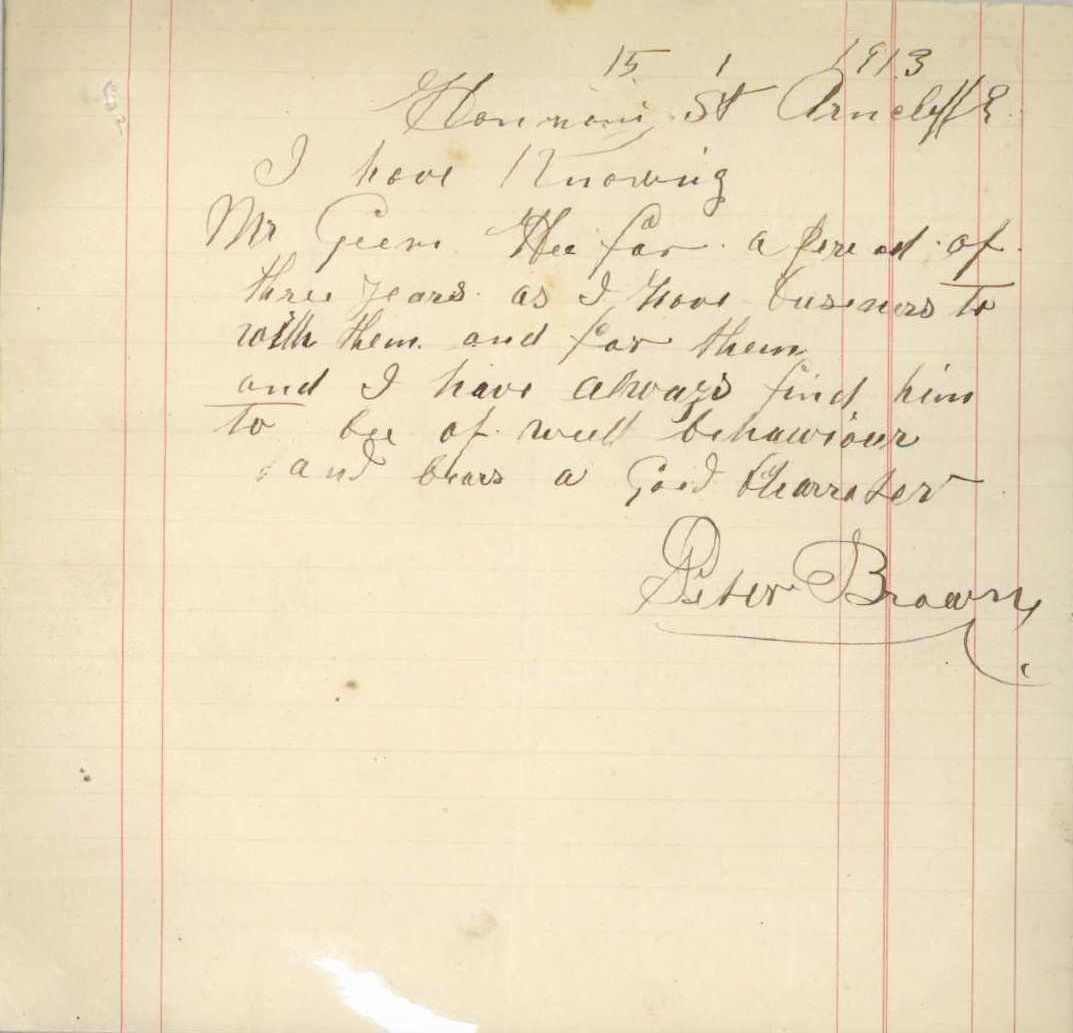 15 1 1913
St Arncliffe
I have Knowing
Mr Geem Hee for a peread of
three years as I have buseners to
with them and for them
and I have always find him
to bee of well behawiour
and bears a Good Charrater
Peter Brown